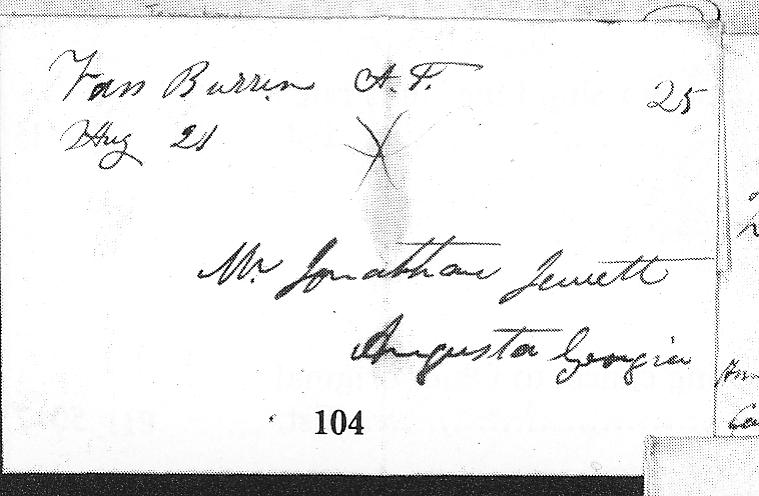 Van Burren A.T. 25
Aug 21
Mr. Jonathan Jewett
Augusta Georgia
104